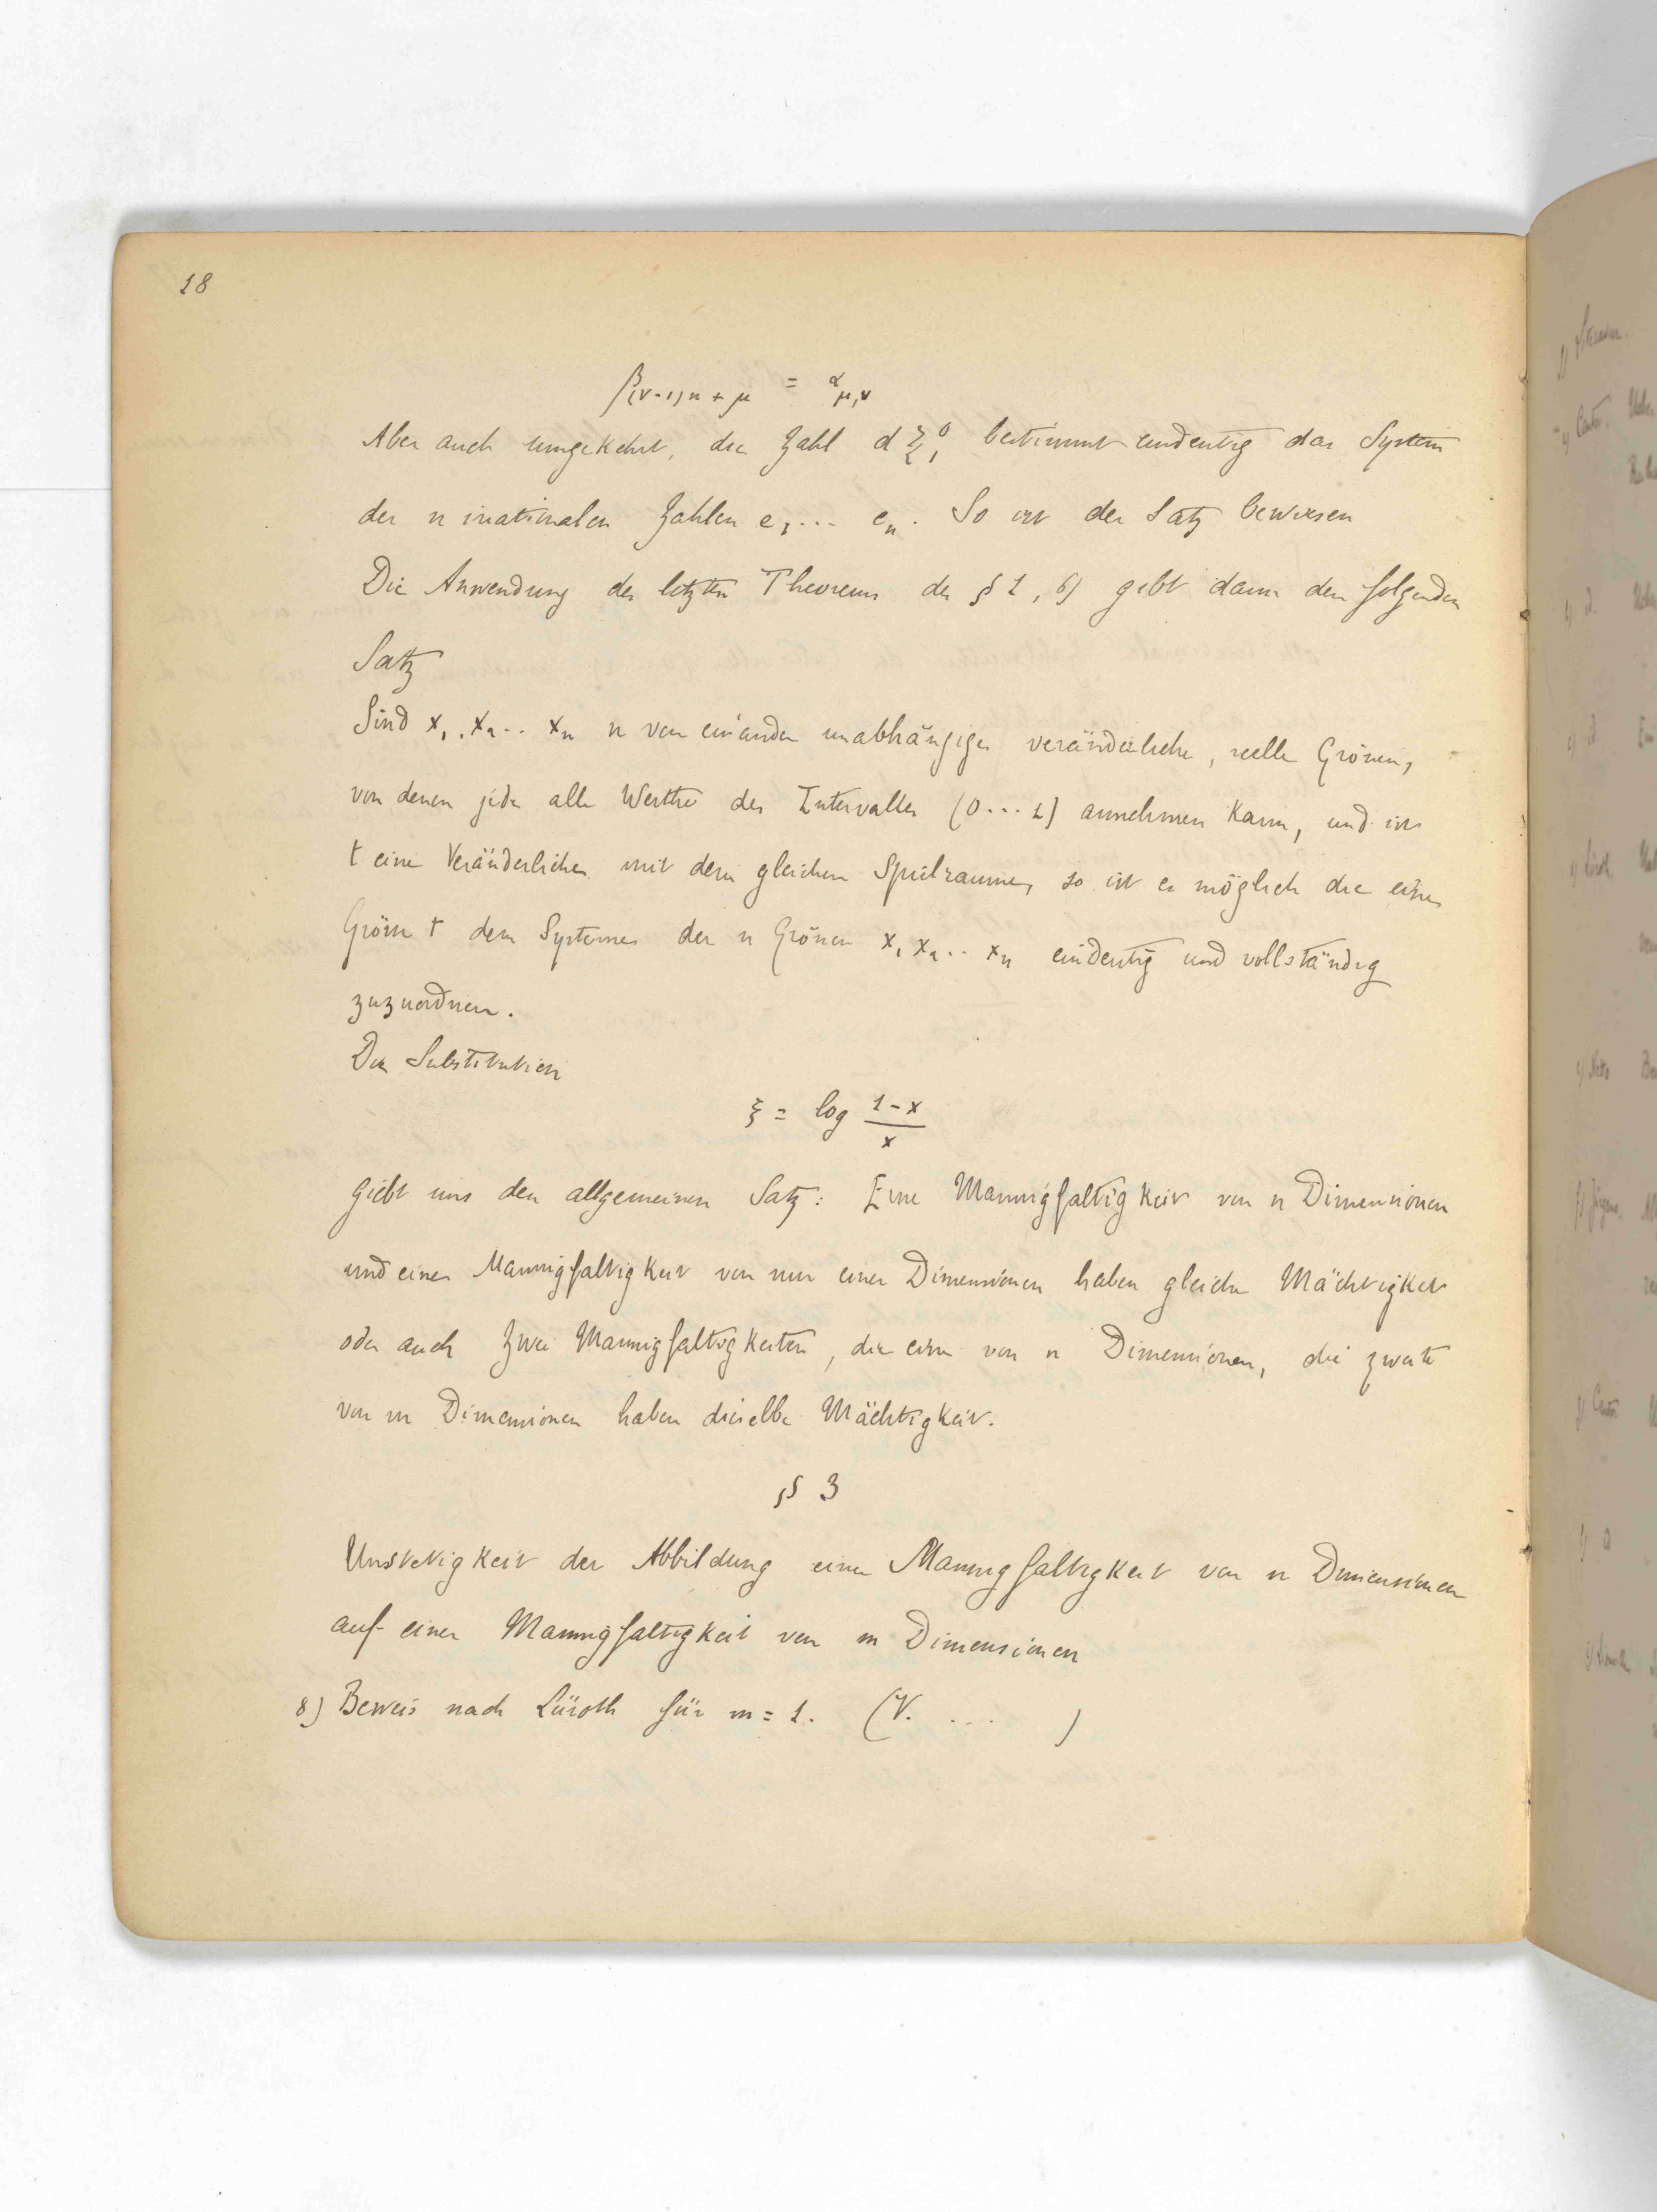 18
β(ν-1)n + μ = α μ,ν
Aber auch umgekehrt, die Zahl d ξ bestimmt eindeutig das System
der n irrationalen Zahlen e₁... eₙ. So ist der Satz bewiesen
Die Anwendung des letzten Theorems des § 1, 6) gibt dann den folgenden
Satz
Sind x₁, x₂.. xₙ n von einander unabhängige veränderliche, reelle Grössen,
von denen jede alle Werthe des Intervalles (0...1) annehmen kann, und ist
t eine Veränderliche mit dem gleichen Spielraume, so ist es möglich die eine
Grösse t dem Systeme der n Grössen x₁ x₂.. xₙ eindeutig und vollständig
zuzuordnen.
Die Substitution
ξ = log (1-x)/x
giebt uns den allgemeinen Satz: Eine Mannigfaltigkeit von n Dimensionen
und eine Mannigfaltigkeit von nur einer Dimensionen haben gleiche Mächtigkeit
oder auch zwei Mannigfaltigkeiten, die eine von n Dimensionen, die zweite
von m Dimensionen haben dieselbe Mächtigkeit.
§ 3
Unstetigkeit der Abbildung einer Mannigfaltigkeit von n Dimensionen
auf einer Mannigfaltigkeit von m Dimensionen
8) Beweis nach Lüroth für m = 1. (V. ... )